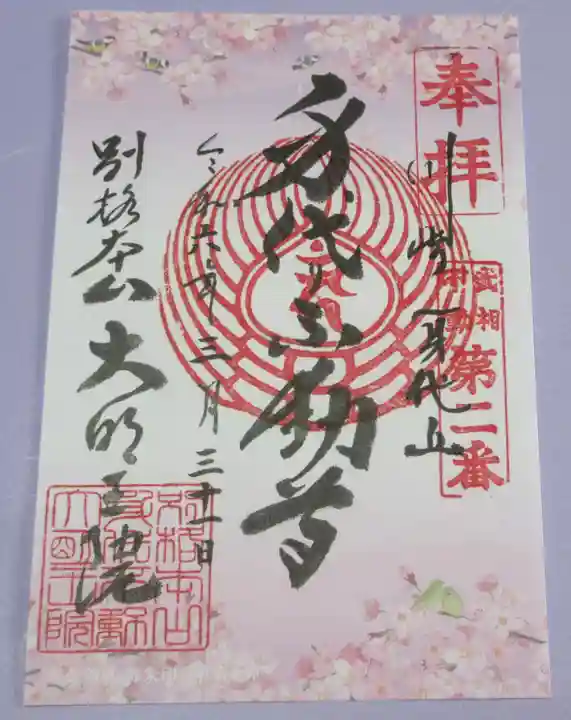 奉拝
川崎 身代丘
武相不動
第二番
身代り不動尊
令和六年三月三十一日
別格本山 大明王院